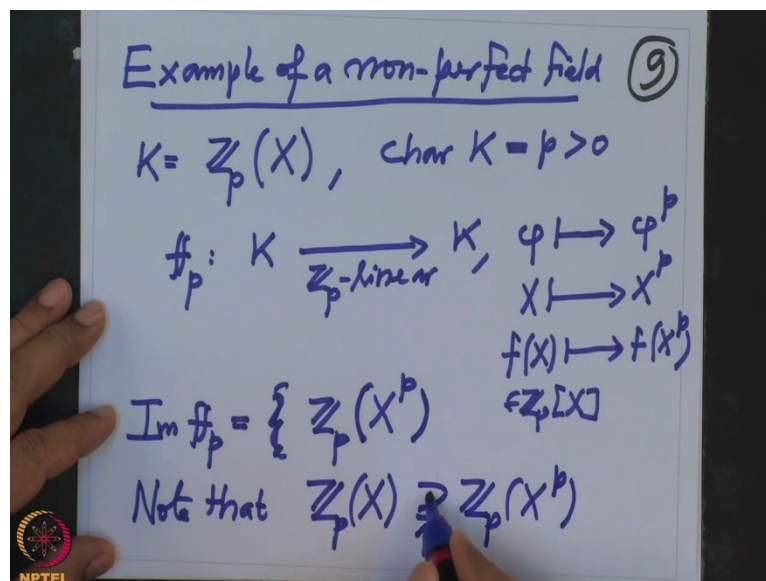 Example of a non-perfect field ⑨
K = ℤ_p(X), char K = p > 0
f_p : K ⟶ K, φ ⟼ φ^p
ℤ_p-linear
X ⟼ X^p
f(X) ⟼ f(X^p)
∈ ℤ_p[X]
Im f_p = { ℤ_p(X^p)
Note that ℤ_p(X) ⊋ ℤ_p(X^p)
NPTEL